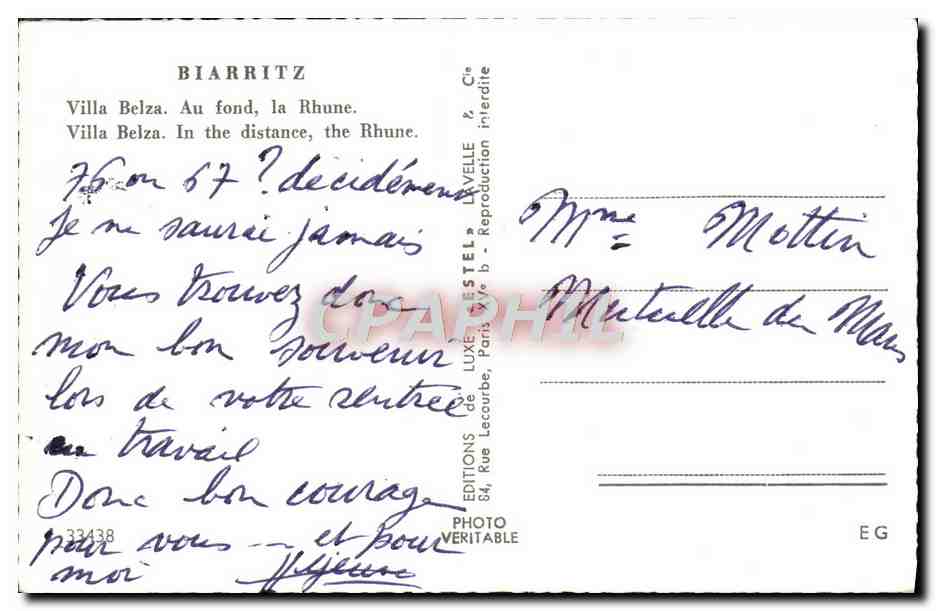 BIARRITZ
Villa Belza. Au fond, la Rhune.
Villa Belza. In the distance, the Rhune.
76 ou 67 ? décidément
je ne saurai jamais
Vous trouvez donc
mon bon souvenir
lors de votre rentrée
au travail
Donc bon courage
pour vous — et pour
moi
33438
EDITIONS de LUXE "ESTEL" LAVELLE & Cie
84, Rue Lecourbe, Paris XVe b - Reproduction interdite
PHOTO
VERITABLE
Mme Mottin
Mutuelle du Mans
EG
CPAPHIL